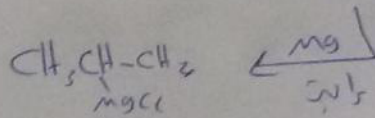 CH₃CH-CH₃ ← Mg
MgCl